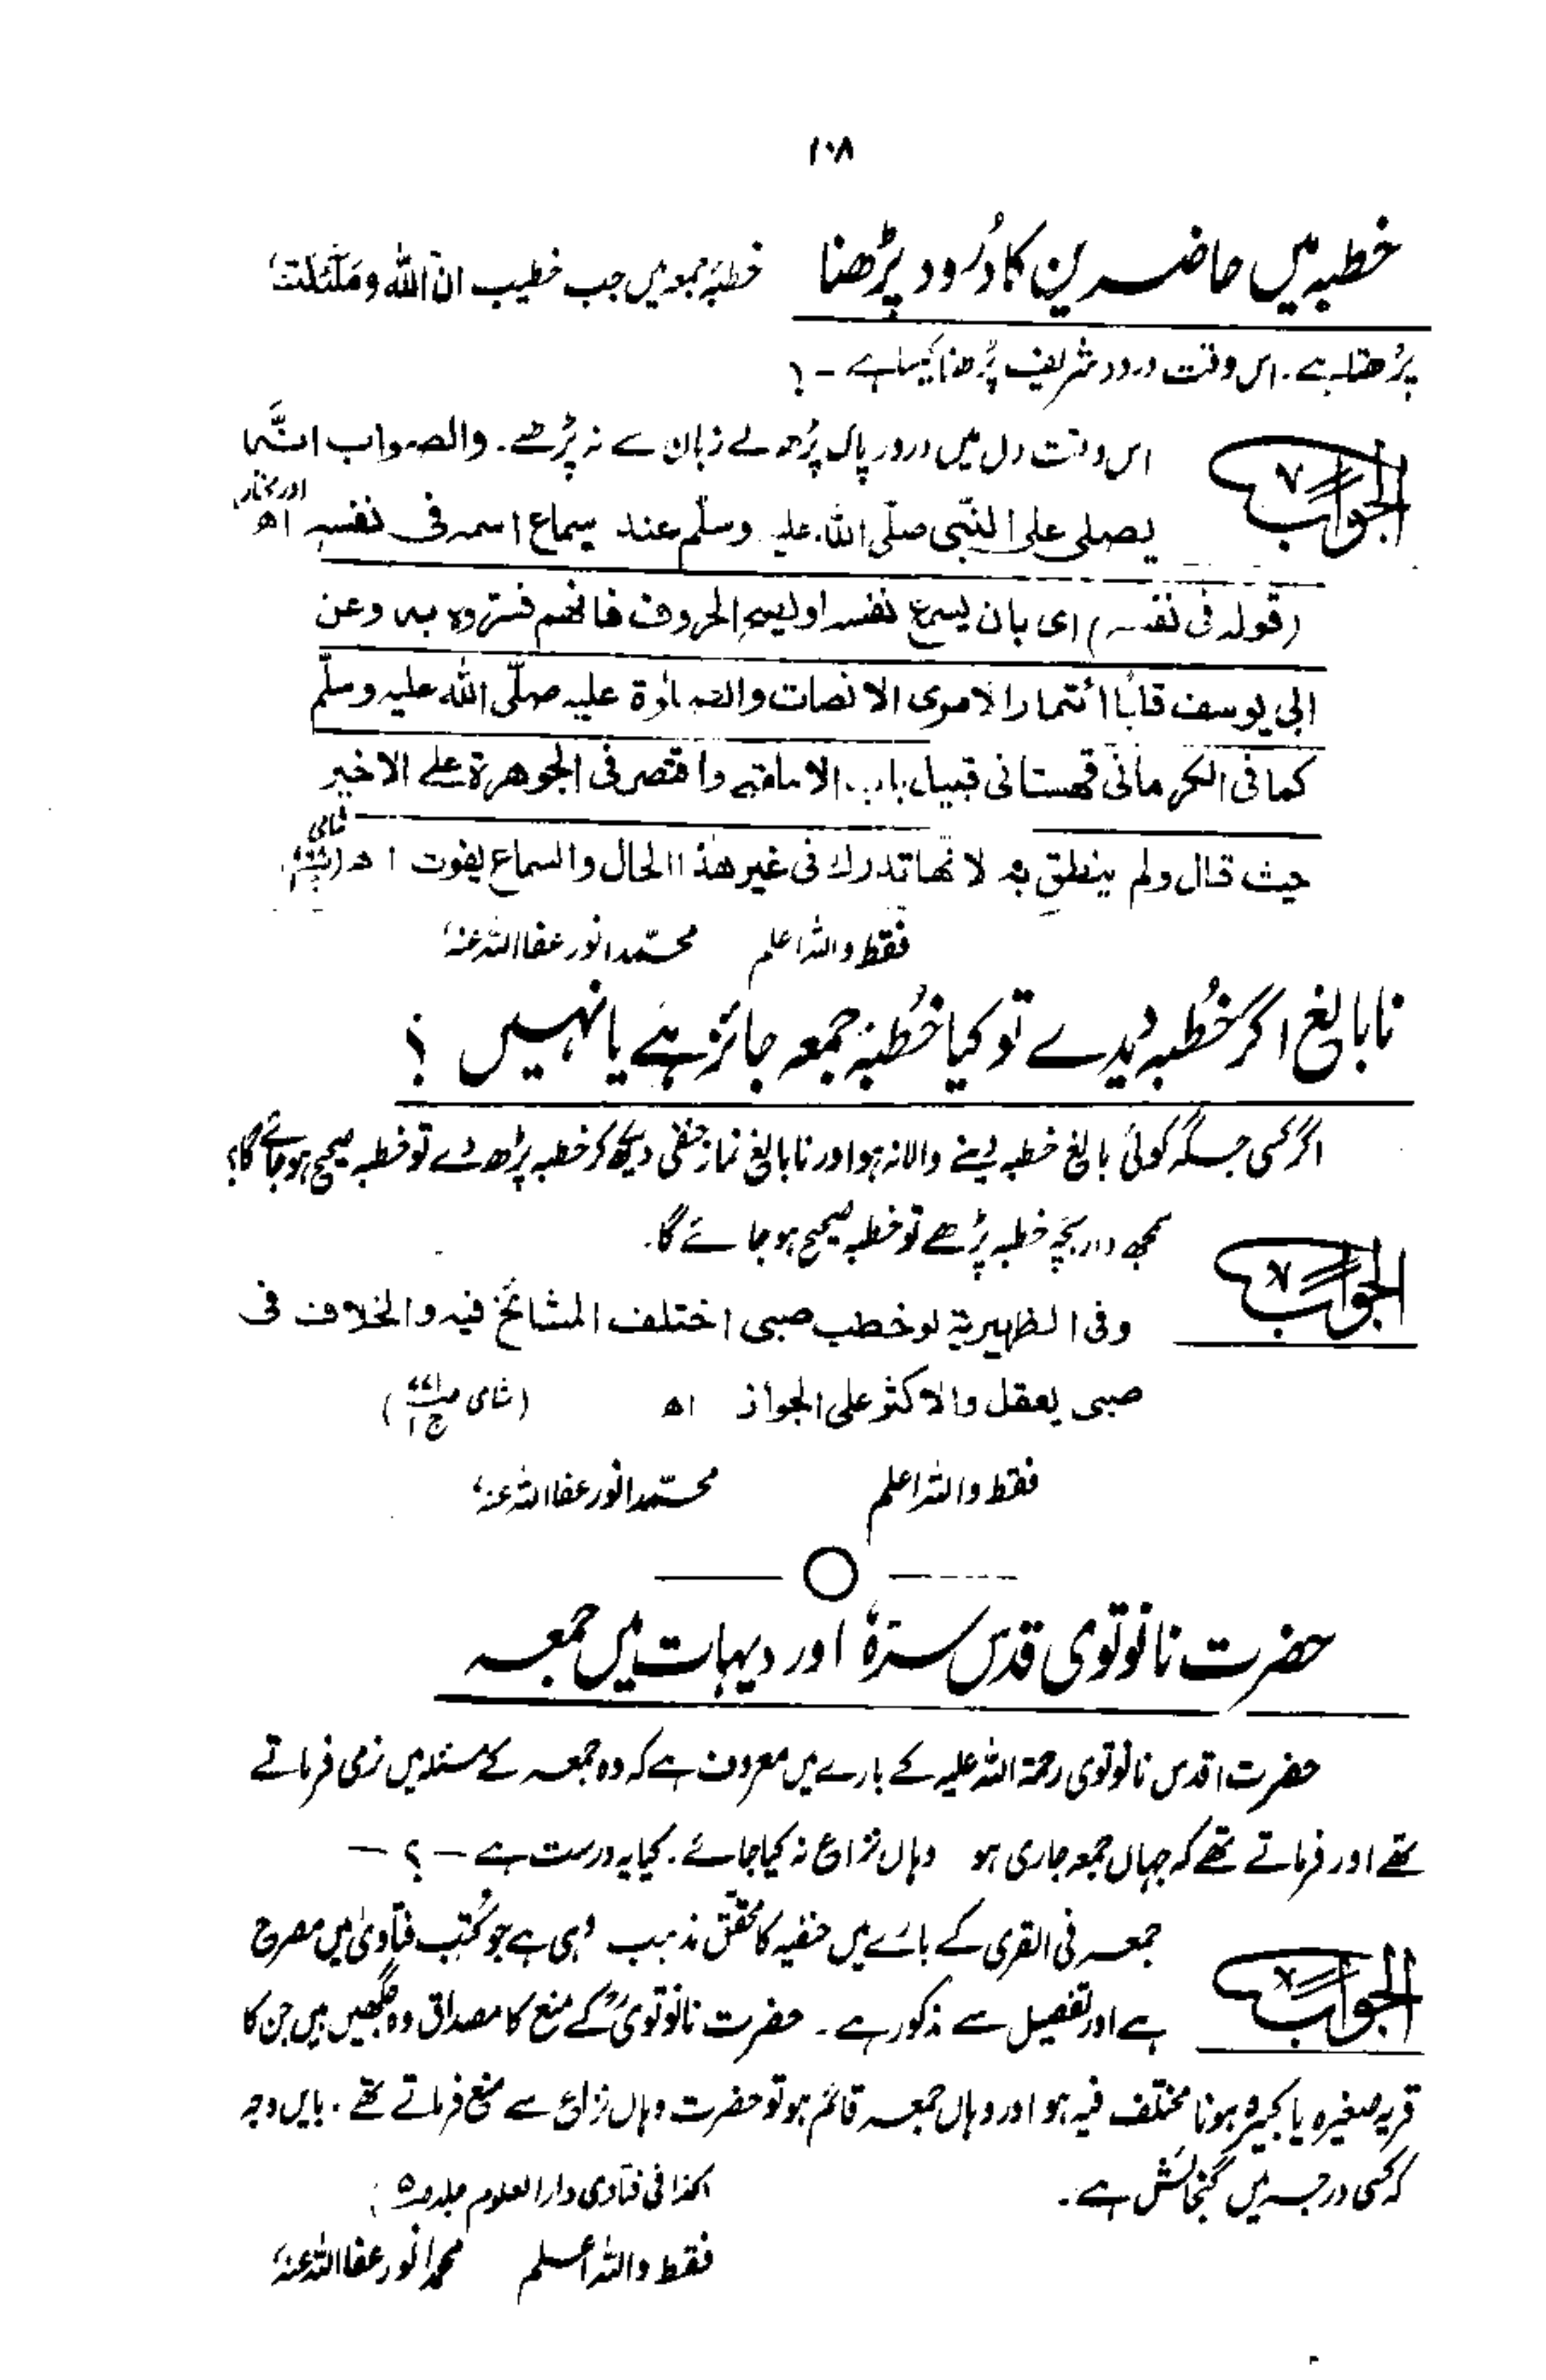 ۱۰۸
خطبہ میں حاضرین کا دُرود پڑھنا خطبۂ جمعہ میں جب خطیب انّ اللہ وملٰئکتہ
پڑھتا ہے۔ اس وقت درود شریف پڑھنا کیسا ہے ۔؟
الجواب اس وقت دل میں درود پاک پڑھ لے زبان سے نہ پڑھے۔ والصواب انّہ
یصلی علی النّبی صلّی اللہ علیہ وسلّم عند سماع اسمہ فی نفسہ اھ (درمختار)
(قولہ فی نفسہ) ای بان یسمع نفسہ او یصحح الحروف فانھم فسّروہ بہ وعن
ابی یوسف قلبًا ائتمارا لامری الانصات والصلٰوۃ علیہ صلّی اللہ علیہ وسلّم
کما فی الکرمانی قھستانی قبیل باب الامامۃ واقتصر فی الجوھرۃ علی الاخیر
حیث قال ولم ینطق بہ لانھا تدرك فی غیر ھذا الحال والسماع یفوت اھ (شامی
فقط واللہ اعلم محمّد انور عفا اللہ عنہ
نابالغ اگر خُطبہ دیدے تو کیا خُطبۂ جمعہ جائز ہے یا نہیں ؟
اگر کسی جگہ کوئی بالغ خطبہ دینے والا نہ ہو اور نابالغ نماز حنفی دیکھ کر خطبہ پڑھ دے تو خطبہ صحیح ہو جائے گا؟
سمجھ دار بچّہ خطبہ پڑھے تو خطبہ صحیح ہو جائے گا۔
الجواب وفی الظہیریۃ لو خطب صبی اختلف المشائخ فیہ والخلاف فی
صبی یعقل والاکثر علی الجواز اھ (شامی ج۱)
فقط واللہ اعلم محمّد انور عفا اللہ عنہ
حضرت نانوتوی قدّس سرّہٗ اور دیہات میں جمعہ
حضرت اقدس نانوتوی رحمۃ اللہ علیہ کے بارے میں معروف ہے کہ وہ جمعہ کے مسئلہ میں نرمی فرماتے
تھے اور فرماتے تھے کہ جہاں جمعہ جاری ہو وہاں نزاع نہ کیا جائے۔ کیا یہ درست ہے ۔؟۔
الجواب جمعہ فی القری کے بارے میں حنفیہ کا محقّق مذہب وہی ہے جو کُتب فتاویٰ میں مصرح
ہے اور تفصیل سے مذکور ہے۔ حضرت نانوتویؒ کے منع کا مصداق وہ جگہیں ہیں جن کا
قریہ صغیرہ یا کبیرہ ہونا مختلف فیہ ہو اور وہاں جمعہ قائم ہو تو حضرت وہاں نزاع سے منع فرماتے تھے۔ بایں وجہ
کہ کسی درجہ میں گنجائش ہے۔ کذا فی فتاوی دارالعلوم جلد ۵
فقط واللہ اعلم محمد انور عفا اللہ عنہ